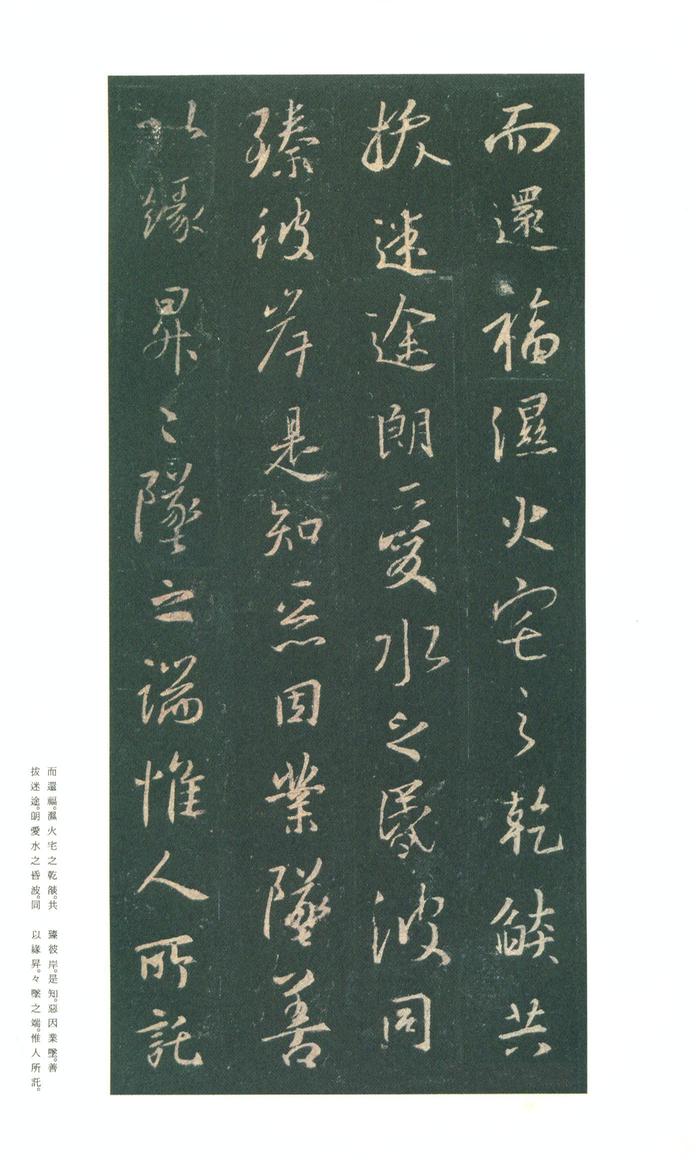 而還福濕火宅之乾燄共
拔迷途朗愛水之昏波同
臻彼岸是知惡因業墜善
以緣昇々墜之端惟人所託
而還福。濕火宅之乾燄。共
拔迷途。朗愛水之昏波。同
臻彼岸。是知。惡因業墜。善
以緣昇。々墜之端。惟人所託。